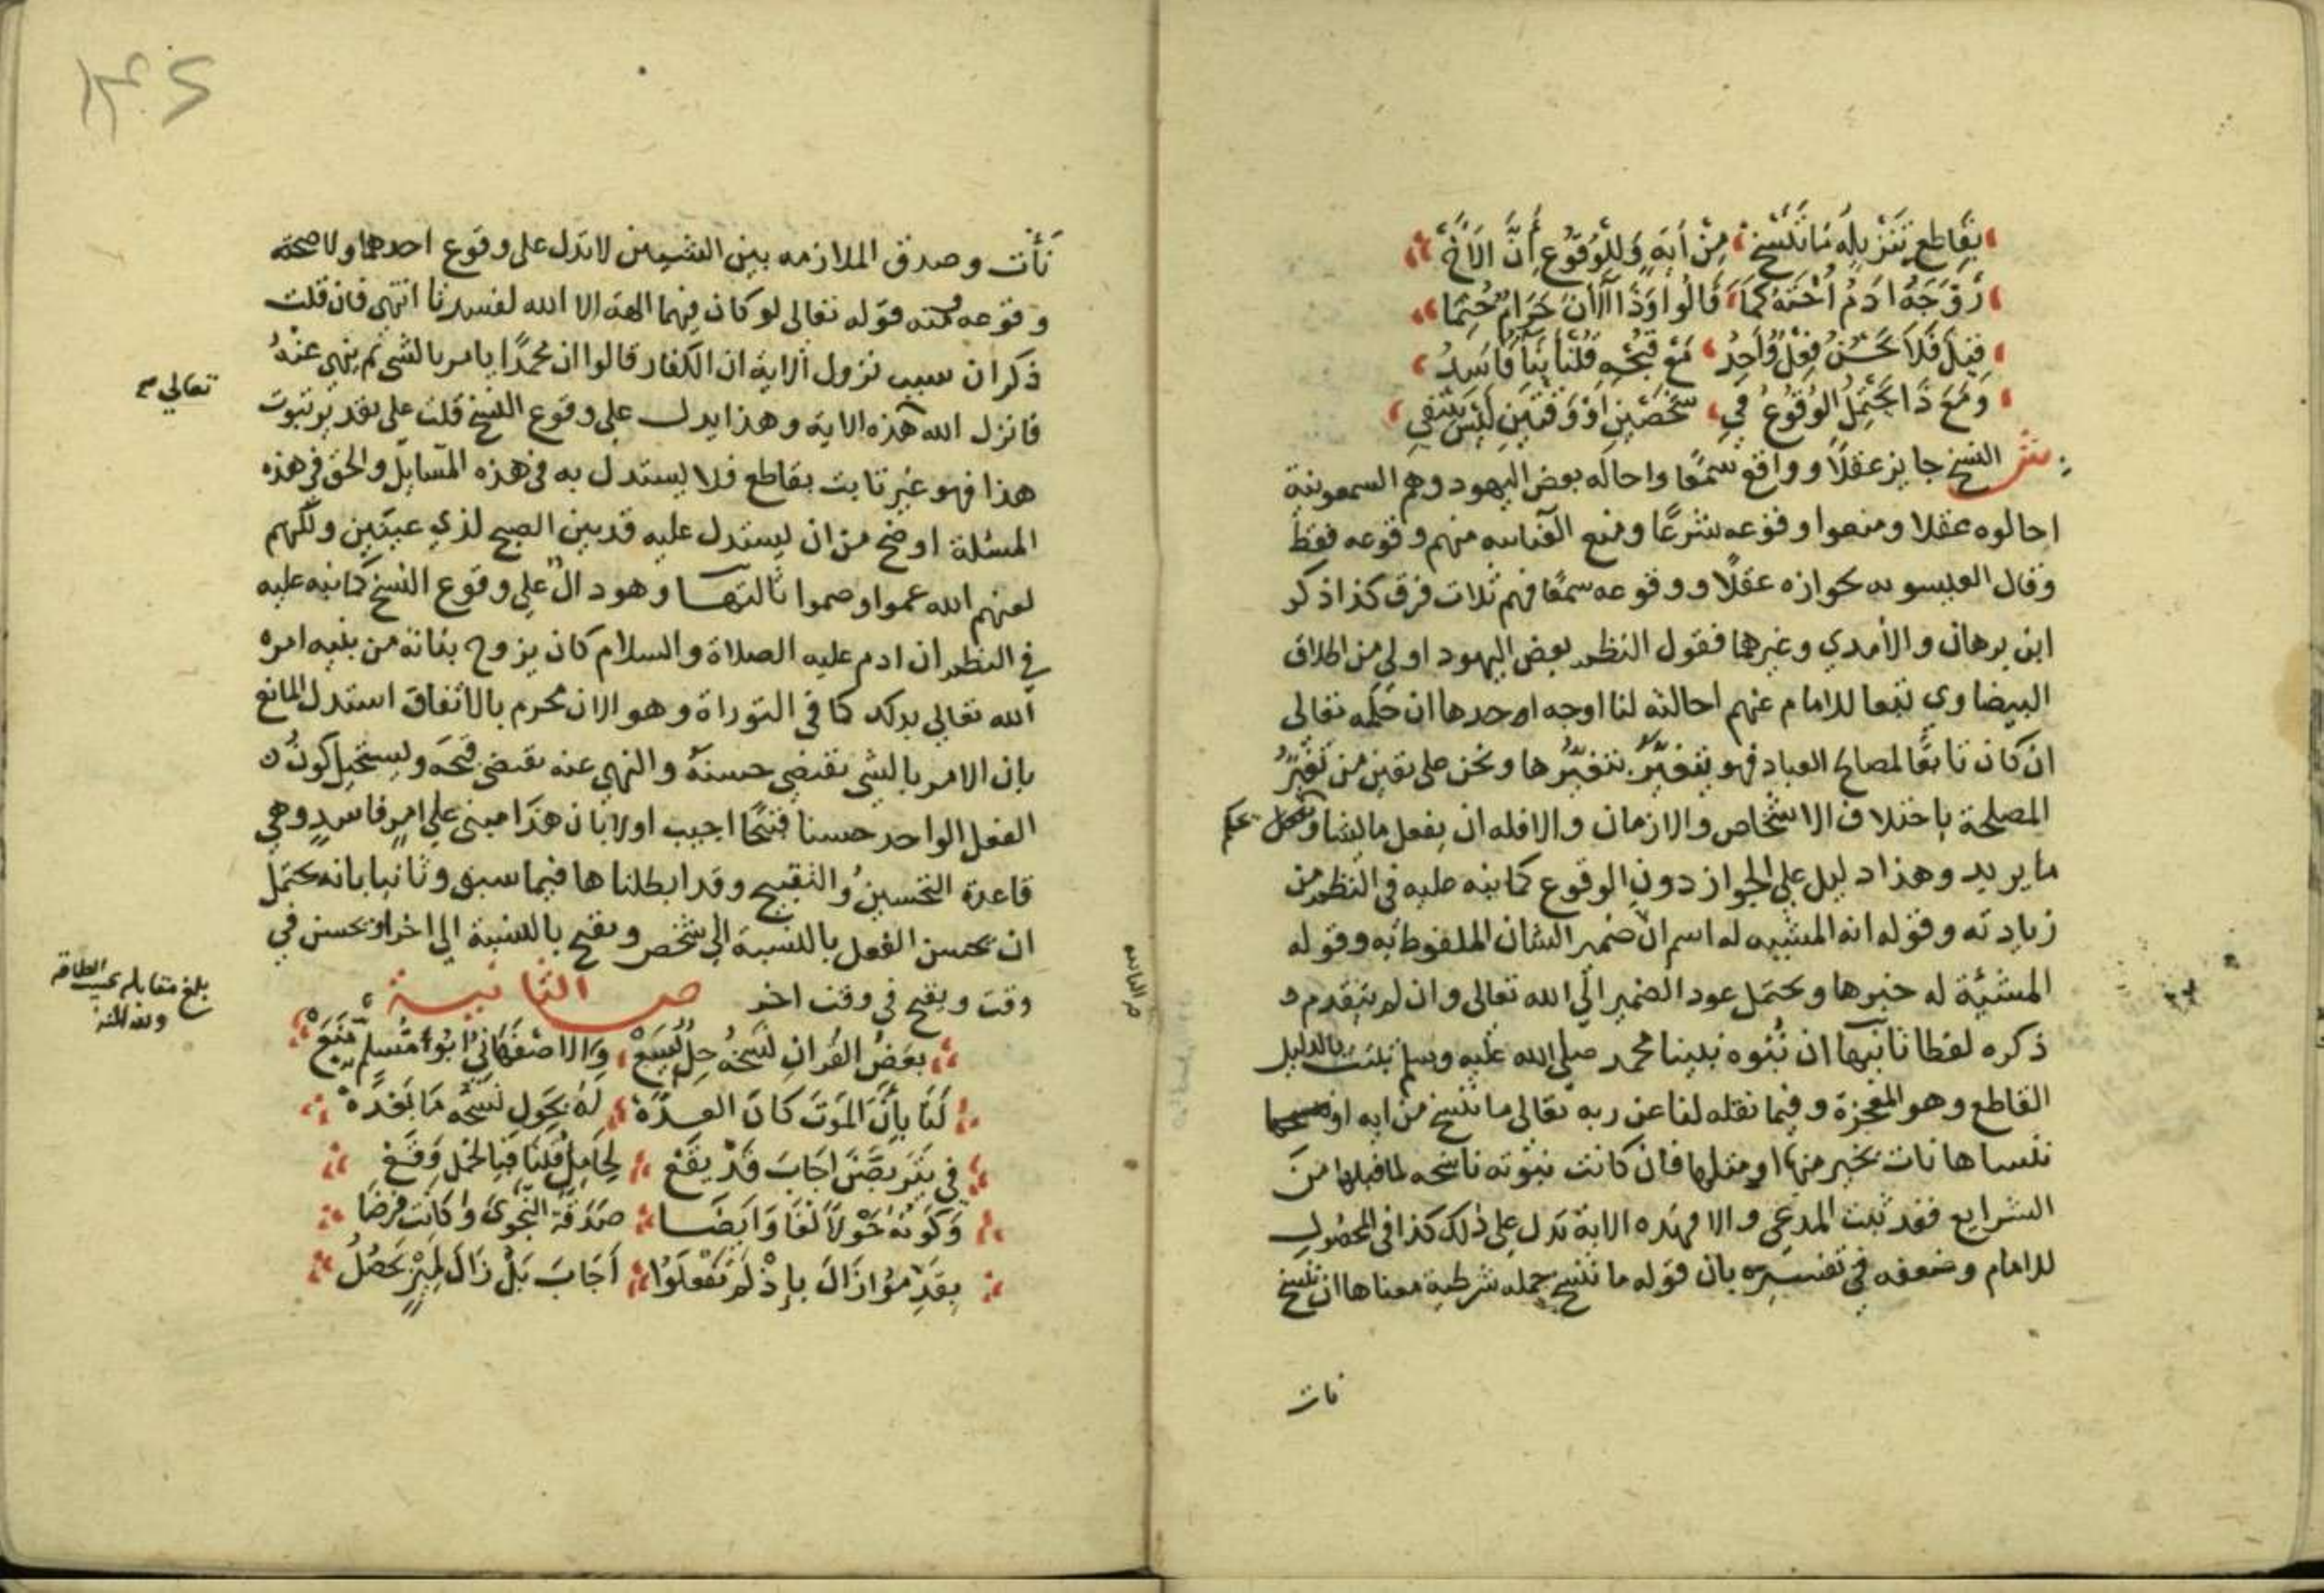 بقاطع تنزيله ما ننسخ من اية وللوقوع أن الاخ
زوجه ادم اخته كما قالوا وذا الآن حرام حتما
قيل فلا يحسن فعل واحد مع قبحه قلنا بنا فاسد
ومع ذا يحتمل الوقوع في شخصين او وقتين ليس ينتفي
ش النسخ جايز عقلا وواقع سمعا واحاله بعض اليهود وهم السمعونية
احالوه عقلا ومنعوا وقوعه شرعا ومنع العنانيه منهم وقوعه فقط
وقال العيسويه بجوازه عقلا ووقوعه سمعا فهم ثلاث فرق كذا ذكر
ابن برهان والأمدي وغيرهما فقول النظم بعض اليهود اولى من اطلاق
البيضاوي تبعا للامام عنهم احالته لنا اوجه احدها ان حكمه تعالى
ان كان تابعا لمصالح العباد فهو يتغير بتغيرها ونحن على يقين من تغير
المصلحة باختلاف الاشخاص والازمان والا فله ان يفعل ما يشا ويحكم
ما يريد وهذا دليل على الجواز دون الوقوع كما نبه عليه في النظم من
زيادته وقوله انه المشيه له اسم ان ضمير الشان الملفوظ به وقوله
المشيئة له خبرها ويحتمل عود الضمير الي الله تعالى وان لم يتقدم
ذكره لفظا ثانيها ان نبوه نبينا محمد صلى الله عليه وسلم ثبتت بالدليل
القاطع وهو المعجزة وفيما نقله لنا عن ربه تعالى ما ننسخ من ايه او
ننساها نات بخير منها او مثلها فان كانت نبوته ناسخه لما قبلها من
الشرايع فقد ثبت المدعى والا فهذه الاية تدل على ذلك كذا في المحصول
للامام وضعفه في تفسيره بان قوله ما ننسخ جمله شرطية معناها ان ننسخ
نات
نأت وصدق الملازمه بين الشيين لا تدل على وقوع احدهما ولا صحة
وقوعه ومنه قوله تعالى لو كان فيهما الهة الا الله لفسدتا انتهى فان قلت
ذكر ان سبب نزول الاية ان الكفار قالوا ان محمدا يامر بالشي ثم ينهى عنه
فانزل الله هذه الاية وهذا يدل على وقوع النسخ قلت على تقدير ثبوت
تعالي صح
هذا فهو غير ثابت بقاطع فلا يستدل به في هذه المسايل والحق في هذه
المسئلة اوضح من ان يستدل عليه قد بين الصبح لذي عينين ولكنهم
لعنهم الله عموا وصموا ثالثها وهو دال علي وقوع النسخ كما نبه عليه
في النظم ان ادم عليه الصلاة والسلام كان يزوج بناته من بنيه امره
الله تعالي بذلك كما في التوراة وهو الان محرم بالاتفاق استدل المانع
بان الامر بالشي يقتضي حسنه والنهي عنه يقتضي قبحه ويستحيل كون
الفعل الواحد حسنا قبيحا اجيب اولا بان هذا مبني على امر فاسد وهي
قاعدة التحسين والتقبيح وقد ابطلناها فيما سبق وثانيا بانه يحتمل
ان يحسن الفعل بالنسبة الي شخص ويقبح بالنسبة الي اخر او يحسن في
وقت ويقبح في وقت اخر ص الثانية
بلغ مقابلة بحسب الطاقة
ولله المنة
بعض القران نسخه حل يسع والاصفهاني ابو مسلم منع
لنا بأن الموت كان العدة له بحول نسخه ما بعده
في بتربصن اجاب قد يقع لحامل قلنا فبالحمل وقع
وكونه حولا لغا وايضا صدقة النجوى وكانت فرضا
بقدموا زال بإذ لم تفعلوا أجاب بل زال لميز يحصل